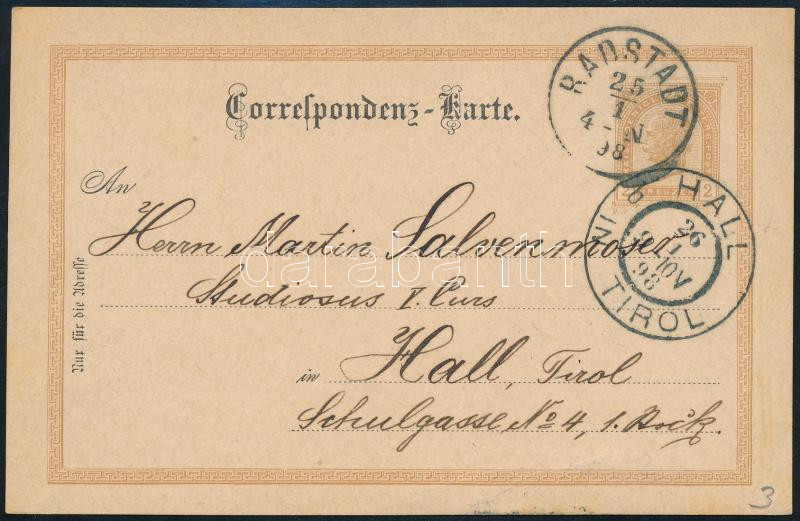 RADSTADT
25
1
4 - N
98
Correspondenz-Karte.
2 KREUZER 2
An
HALL IN TIROL
26
1
98
Herrn Martin Salvenmoser
Studiosus I. Curs
in Hall, Tirol
Schulgasse No 4, 1. Stock.
Nur für die Adresse
darabanth
3